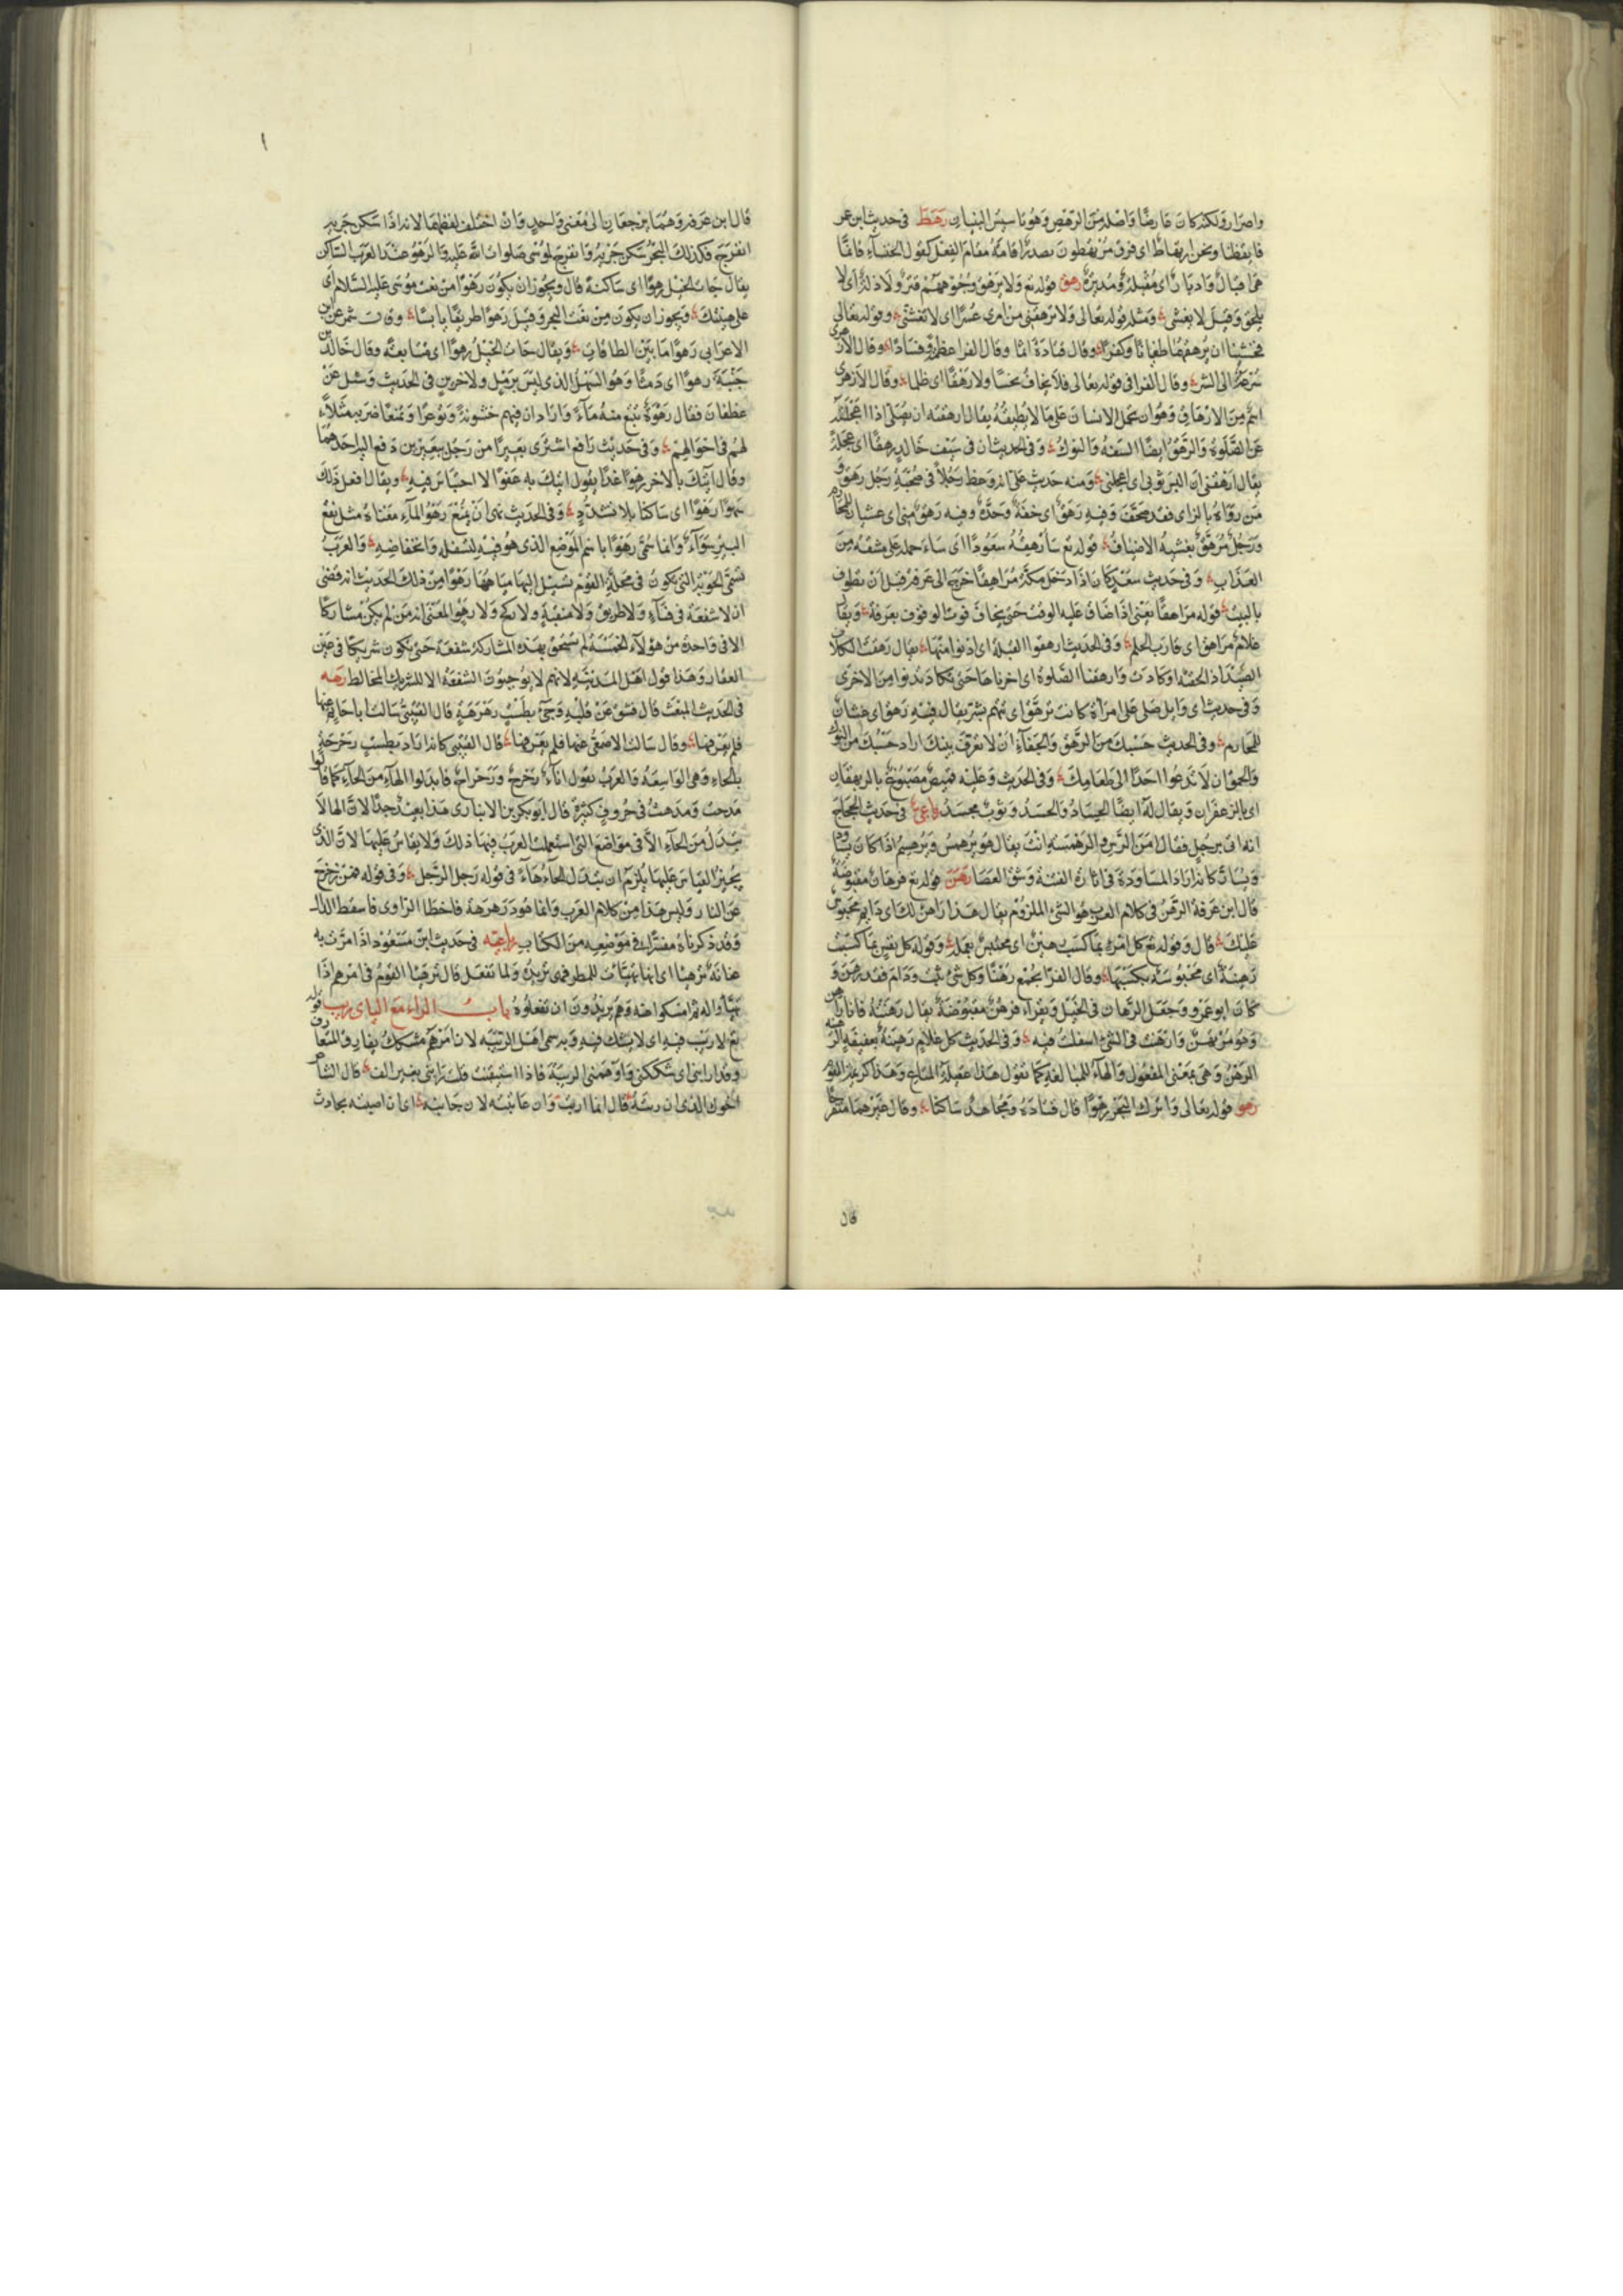 واصرار ولكنه كان قارضا واصله من الرهص وهو تاسيس البنيان رهط في حديث ابن عمر
فايقظنا ونحن ارتهاط اي فرق مرتهطون مصدر اقامه مقام الفعل كقول الخنساء فانما
هي اقبال وادبار اي مقبلة ومدبرة رهق قوله تع ولا يرهق وجوههم قتر ولا ذلة اي لا
يلحق وقيل لا يغشى ومثله قوله تعالى ولا ترهقني من امري عسرا اي لا تغشني وقوله تعالى
فخشينا ان يرهقهما طغيانا وكفرا وقال قتادة اثما وقال الفرا عظمة وفسادا وقال الازهري
سرعة الى الشر وقال الفرا في قوله تعالى فلا يخاف بخسا ولا رهقا اي ظلما وقال الازهري
اسم من الارهاق وهو ان تحمل الانسان على ما لا يطيقه يقال ارهقته ان يصلي اذا اعجلته
عن الصلوة والرهق ايضا السفه والنوك وفي الحديث ان في سيف خالد رهقا اي عجلة
يقال ارهقني ان البس ثوبي اي اعجلني ومنه حديث علي انه وعظ رجلا في صحبة رجل رهق و
من رواه بالزاي فقد صحف وفيه رهق اي خفة وحدة وفيه رهق منى اي غشيان للمحارم
ورجل مرهق يغشيه الاضياف قوله تع سارهقه صعودا اي ساحمله على مشقة من
العذاب وفي حديث سعد كان اذا دخل مكة مراهقا خرج الى عرفة قبل ان يطوف
بالبيت قوله مراهقا يعني اذا ضاق عليه الوقت حتى يخاف فوت الوقوف بعرفة ويقال
غلام مراهق اي قارب الحلم وفي الحديث ارهقوا القبلة اي ادنوا منها يقال رهقت الكلاب
الصيد اذا لحقته او كادت وارهقنا الصلوة اي اخرناها حتى تكاد تدنوا من الاخرى
وفي حديث ابي وايل صلى على امراة كانت ترهق اي تتهم بشر يقال فيه رهق اي غشيان
للمحارم وفي الحديث حسبك من الرهق والجفاء ان لا يعرف بيتك اراد حسبك من النوك
والحمق ان لا تدعوا احدا الى طعامك وفي الحديث وعليه قميص مصبوغ بالريهقان
اي بالزعفران ويقال له ايضا الجساد والجسد وثوب مجسد في حديث الحجاج
انه اتي برجل فقال امن الرس والرهمسة انت يقال هو يرهمس ويرهسم اذا كان يسار
ويسار كانه اراد المساودة في اثارة الفتنة وشق العصا رهن قوله تع فرهان مقبوضة
قال ابن عرفة الرهن في كلام العرب هو الشيء الملزوم يقال هذا راهن لك اي دايم محبوس
عليك قال وقوله تع كل امرء بما كسب رهين اي محتبس بعمله وقوله كل نفس بما كسبت
رهينة اي محبوسة بكسبها وقال الفرا يجمع رهنا وكل شيء ثبت ودام فقد رهن و
كان ابو عمرو وجعل الرهان في الخيل ويقراء فرهن مقبوضة يقال رهنته فانا راهن
وهو مرتهن وارهنت في الشيء اسلفت فيه وفي الحديث كل غلام رهينة بعقيقته الرهينة
الرهن وهي بمعنى المفعول والهاء للمبالغة كما تقول هذا عقيلة المتاع وهذا كريمة القوم
رهو قوله تعالى واترك البحر رهوا قال قتادة ومجاهد ساكنا وقال غيرهما منفرجا
قال
قال ابن عرفة وهما يرجعان الى معنى واحد وان اختلف لفظهما لانه اذا سكن جريه
انفرج وكذلك البحر سكن جريه وانفرج لموسى صلوات الله عليه والرهو عند العرب الساكن
يقال جات الخيل رهوا اي ساكنة قال ويجوز ان يكون رهوا من نعت موسى عليه السلام اي
على هينتك ويجوز ان يكون من نعت البحر وقيل رهوا طريقا يابسا وقال شمر عن ابن
الاعرابي رهوا ما بين الطاقات ويقال جات الخيل رهوا اي متتابعة وقال خالد بن
جنبة رهوا اي دمثا وهو السهل الذي ليس برمل ولا حزن وفي الحديث وسئل عن
غطفان فقال رهوة تنبع منه ماء واراد ان فيهم خشونة وتوعرا وتمنعا ضربه مثلا
لهم في احوالهم وفي حديث رافع اشترى بعيرا من رجل ببعيرين دفع اليه احدهما
وقال آتيك بالاخر رهوا غدا يقول آتيك به عفوا لا احتباس فيه ويقال افعل ذلك
سهوا رهوا اي ساكنا بلا تشدد وفي الحديث نهى ان يمنع رهو الماء معناه مثل نقع
البير سواء وانما سمي رهوا باسم الموضع الذي هو فيه لتسفله وانخفاضه والعرب
تسمي الجوبة التي يكون في محلة القوم تسيل اليها مياههما رهوا من ذلك الحديث انه قضى
ان لا شفعة في فناء ولا طريق ولا منقبة ولا ركح ولا رهو المعنى انه من لم يكن مشاركا
الا في واحدة من هؤلاء الخمسة لم يستحق بهذه المشاركة شفعة حتى يكون شريكا في عين
العقار وهذا قول اهل المدينة لانهم لا يوجبون الشفعة الا للشريك المخالط رهره
في الحديث المبعث قال فشق عن قلبه وجيء بطست رهرهة قال القتيبي سالت ابا حاتم عنها
فلم يعرفها وقال سالت الاصمعي عنها فلم يعرفها قال القتيبي كانه اراد بطست رحرحة
بالحاء وهي الواسعة والعرب تقول اناء رحرح ورحراح فابدلوا الهاء من الحاء كما قالوا
مدحت ومدهت في حروف كثيرة قال ابو بكر بن الانباري هذا بعيد جدا لان الها لا
تبدل من الحاء الا في مواضع التي استعملت العرب فيها ذلك ولا يقاس عليها لان الذي
يجيز القياس عليها يلزم ان تبدل الحاء هاء في قوله رحل الرجل وفي قوله فمن زحزح
عن النار وليس هذا من كلام العرب وانما هو درهرهة فاخطا الراوي فاسقط الدال
وقد ذكرناه مفسرا في موضعه من الكتاب في حديث ابن مسعود اذا مرت به
عنانة ترهيا اي انها تهيات للمطر فهي تريده ولما تفعل قال ترهيا القوم في امرهم اذا
تهياوا له ثم امسكوا عنه وهم يريدون ان تفعلوه باب الراء مع الياي ريب قوله
تع لا ريب فيه اي لا يشك فيه وبه سمي اهل الريبة لان امرهم مشكك يفارق المتعارف
وقد ارابني اي شككني واوهمني الريبة فاذا استيقنت قلت رابني بغير الف قال الشاعر
اخوك الذي ان ربته قال انما اربت وان عاتبته لان جانبه اي ان اصبته بحادث